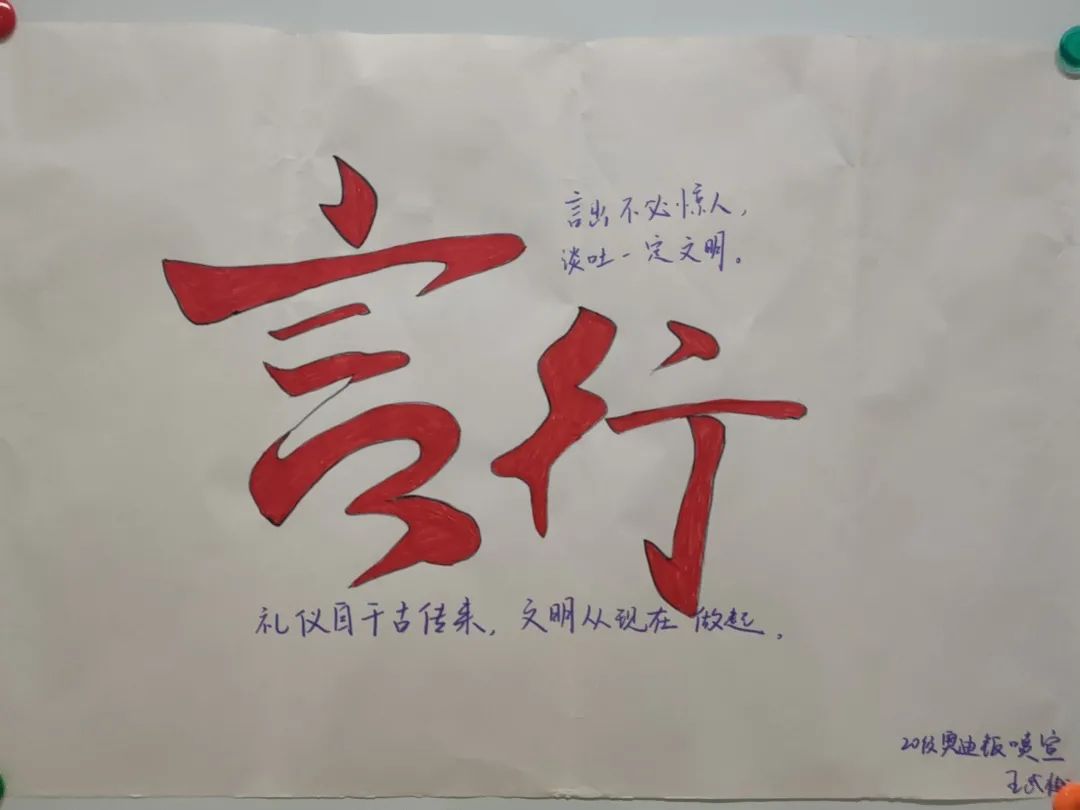 言行
言出不必惊人，
谈吐一定文明。
礼仪自千古传来，文明从现在做起.
20级奥迪钣喷宣
王